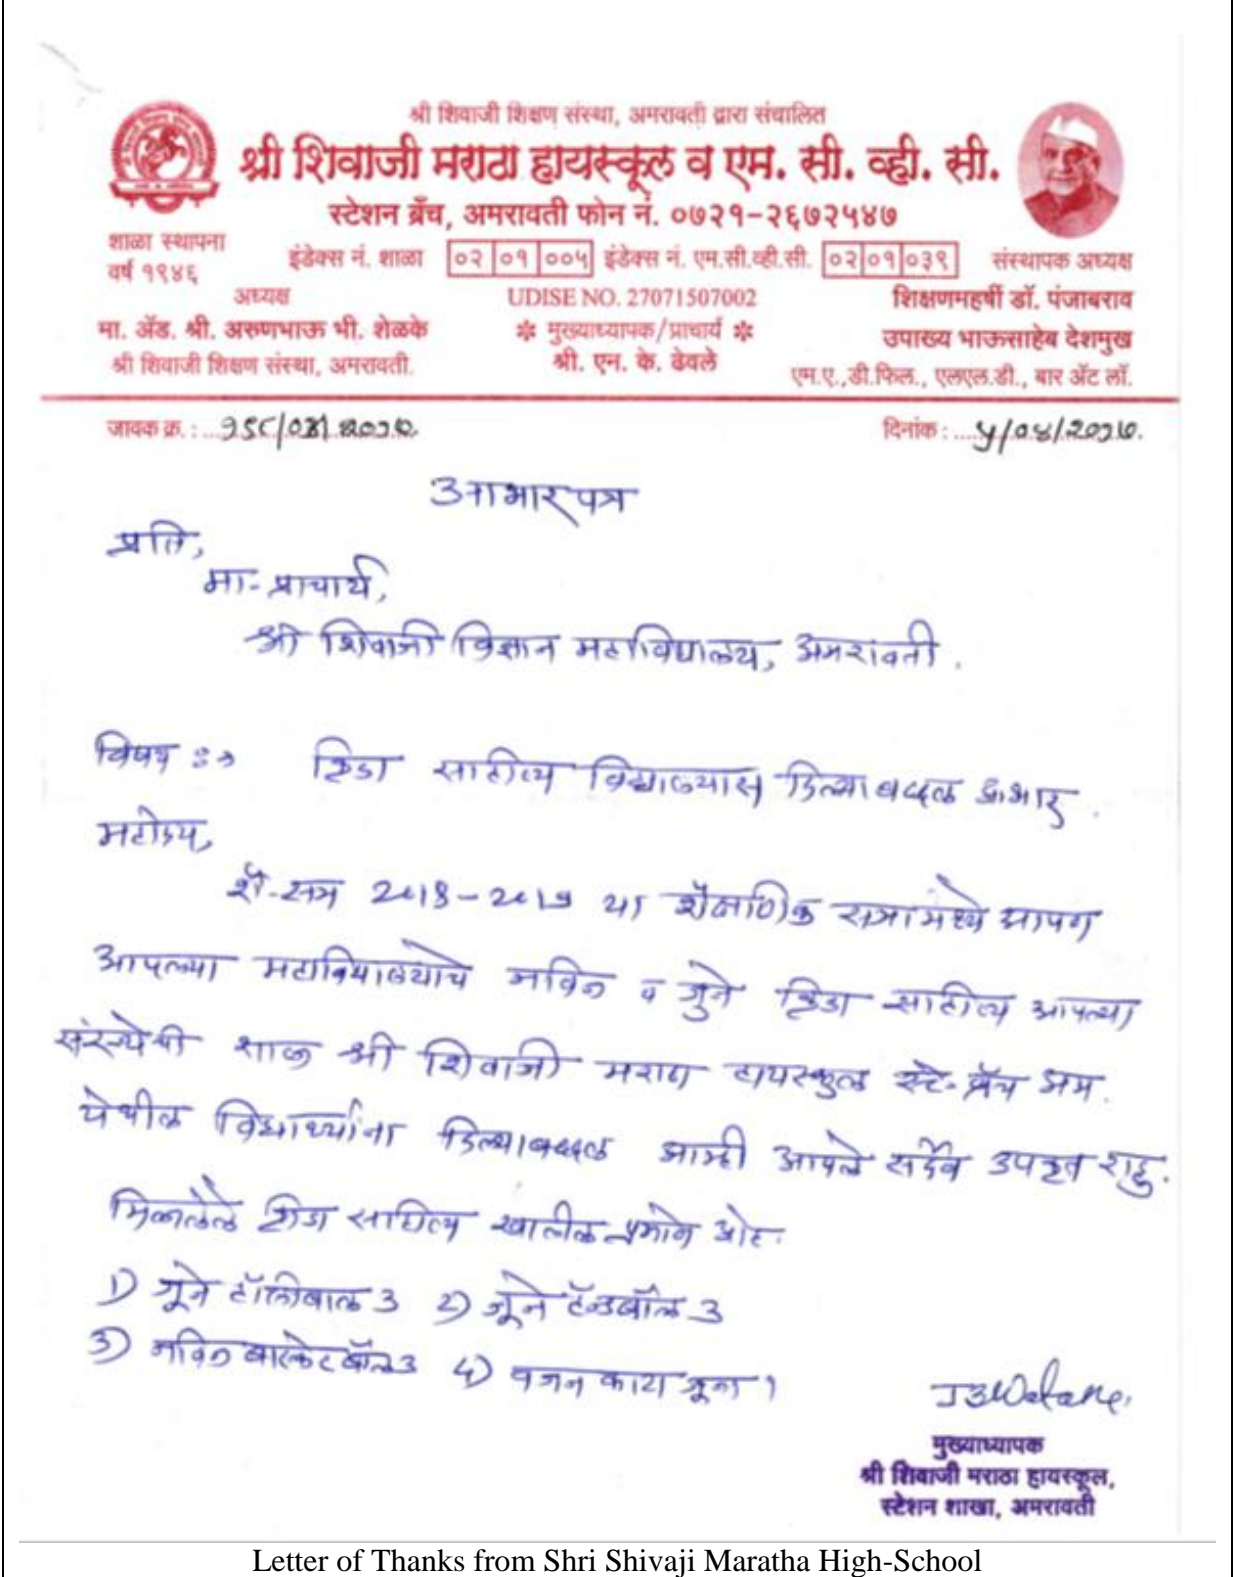 श्री शिवाजी शिक्षण संस्था, अमरावती द्वारा संचालित
श्री शिवाजी मराठा हायस्कूल व एम. सी. व्ही. सी.
स्टेशन ब्रँच, अमरावती फोन नं. ०७२१-२६७२५४७
शाळा स्थापना
वर्ष १९४६
इंडेक्स नं. शाळा ०२ ०१ ००५ इंडेक्स नं. एम.सी.व्ही.सी. ०२ ०१ ०३९
संस्थापक अध्यक्ष
अध्यक्ष
मा. ॲड. श्री. अरुणभाऊ भी. शेळके
श्री शिवाजी शिक्षण संस्था, अमरावती.
UDISE NO. 27071507002
❉ मुख्याध्यापक/प्राचार्य ❉
श्री. एन. के. ढेवले
शिक्षणमहर्षी डॉ. पंजाबराव
उपाख्य भाऊसाहेब देशमुख
एम.ए.,डी.फिल., एलएल.डी., बार ॲट लॉ.
जावक क्र. :
दिनांक : ५/०४/२०१७.
आभार पत्र
प्रति,
मा. प्राचार्य,
श्री शिवाजी विज्ञान महाविद्यालय, अमरावती.
विषय :→ क्रिडा साहीत्य विद्यालयास दिल्याबद्दल आभार.
महोदय,
शै. सत्र 2018-2019 या शैक्षणिक सत्रामध्ये आपण
आपल्या महाविद्यालयाचे नविन व जुने क्रिडा साहीत्य आपल्या
संस्थेची शाळा श्री शिवाजी मराठा हायस्कुल स्टे. ब्रँच अम.
येथील विद्यार्थ्यांना दिल्याबद्दल आम्ही आपले सदैव उपकृत राहु.
मिळालेले क्रिडा साहित्य खालील प्रमाणे आहे.
1) जूने हॉलीबाल 3 2) जूने हँन्डबॉल 3
3) नविन बास्केट बॉल 3 4) वजन काटा जूना 1
J B Watane
मुख्याध्यापक
श्री शिवाजी मराठा हायस्कूल,
स्टेशन शाखा, अमरावती
Letter of Thanks from Shri Shivaji Maratha High-School